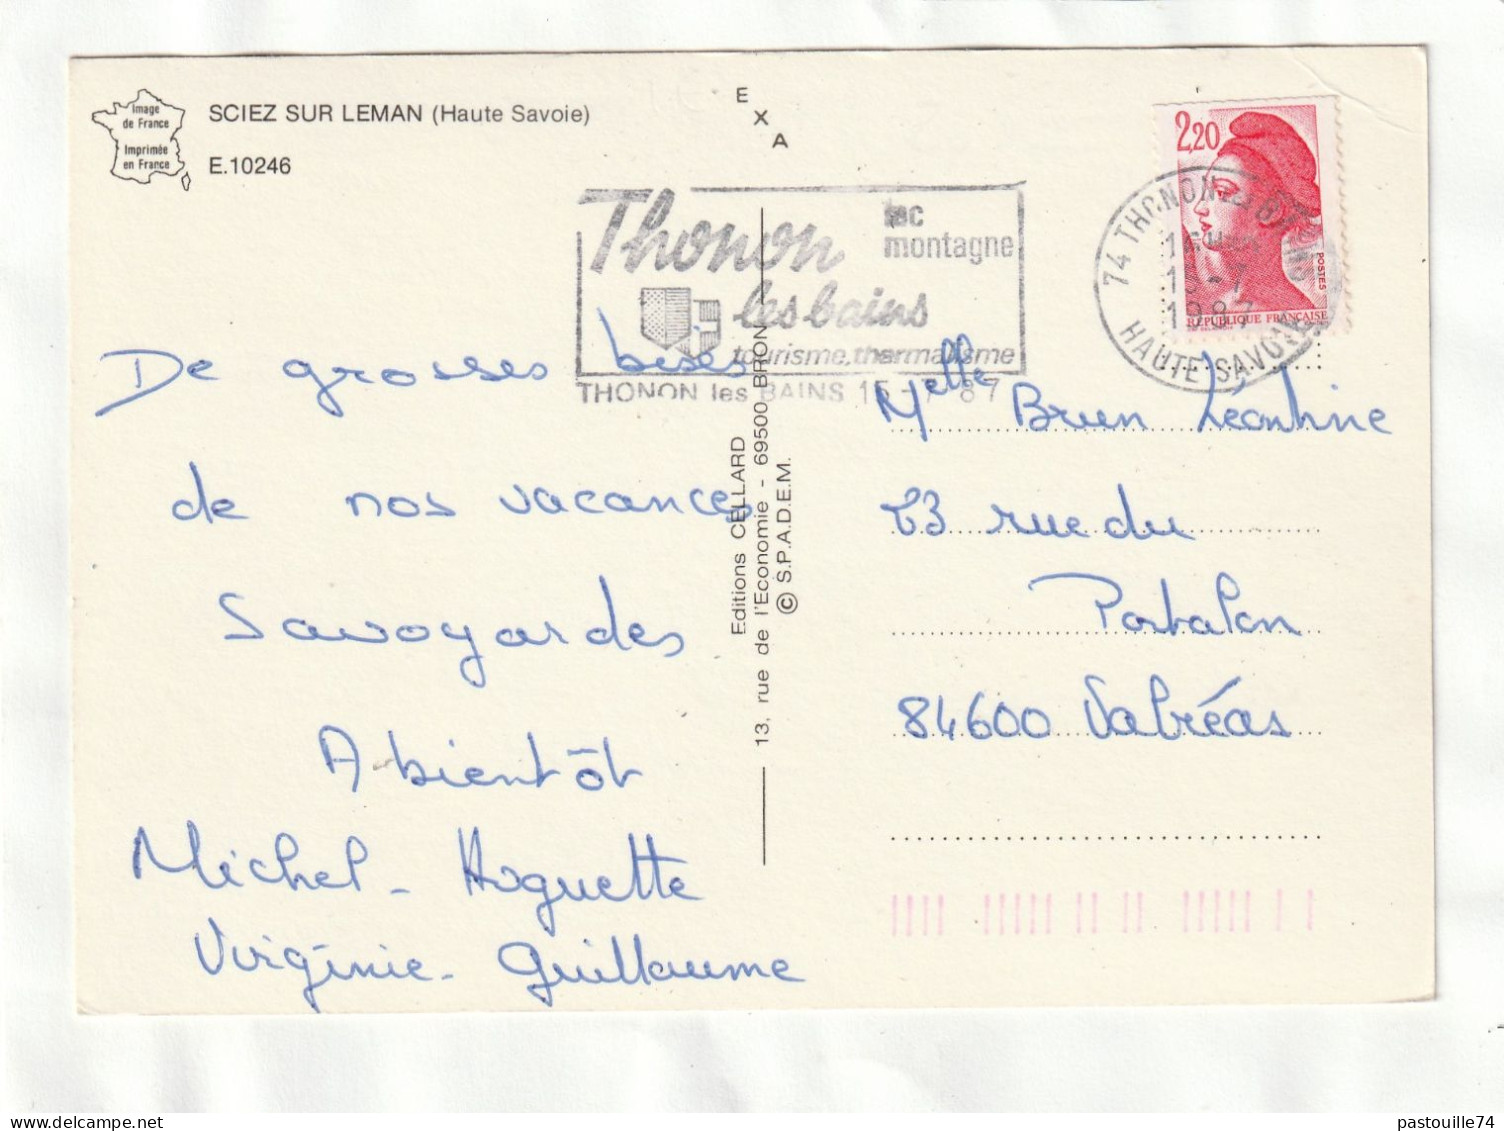 Image
de France
Imprimée
en France
SCIEZ SUR LEMAN (Haute Savoie)
E.10246
E
X
A
2,20
POSTES
REPUBLIQUE FRANÇAISE
74 THONON LES BAINS
1987
HAUTE SAVOIE
Thonon
lac
montagne
les bains
tourisme, thermalisme
THONON les BAINS 15-7 87
De grosses bises
de nos vacances
Savoyardes
A bientôt
Michel - Huguette
Virginie - Guillaume
Editions CELLARD
13, rue de l'Economie - 69500 BRON
© S.P.A.D.E.M.
Melle Brun Léontine
23 rue du
Portalon
84600 Valréas
pastouille74